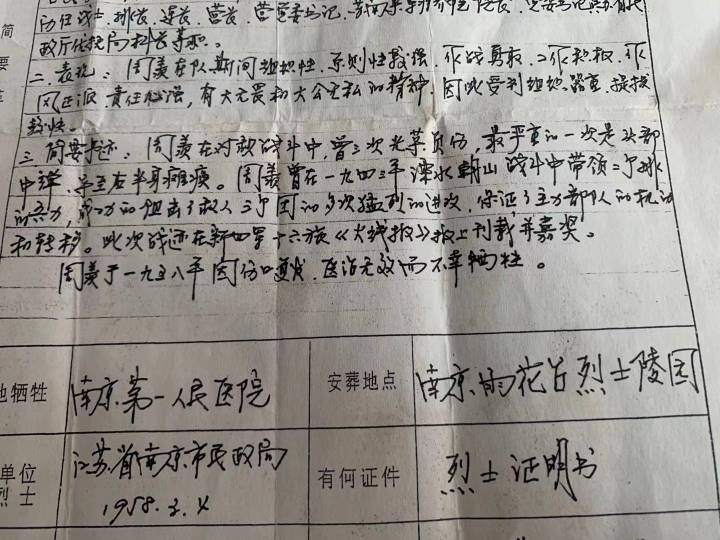 历任战士、排长、连长、营长、营党委书记、
政厅优抚局科长等职。
二、表现：周羲在队期间组织性、原则性较强，作战勇敢，工作积极，作
风正派，责任心强，有大无畏和大公无私的精神，因此受到组织器重，提拔
较快。
三、简要事迹：周羲在对敌战斗中，曾三次光荣负伤，最严重的一次是头部
中弹，导至右半身瘫痪。周羲曾在一九四三年溧水 山战斗中带领二个排
的兵力，成功的阻击了敌人三个团的多次猛烈的进攻，保证了主力部队的机动
和转移。此次战迹在新四军十六旅《火线报》报上刊载并嘉奖。
周羲于一九五八年因伤口复发，医治无效而不幸牺牲。
地牺牲 南京第一人民医院 安葬地点 南京雨花台烈士陵园
单位 江苏省南京市民政局 有何证件 烈士证明书
烈士 1958.3.4
简
要